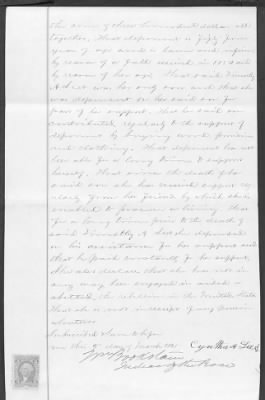 the sum of three hundred dollars all
together. That deponent is fifty four
years of age and is lame and infirm
by reason of a fall received in 1859 and
by reason of her age. That said Timothy
A Lee was her only son and that she
was dependent on her said son for
part of her support. That her said son
contributed regularly to the support of
deponent by buying wood provisions
and clothing. That deponent has not
been able for a long time to support
herself. That since the death of her
said son she has received support
from her friends by which she is
enabled to procure a living. That
for a long time prior to the death of
said Timothy A Lee she depended
on his assistance for her support and
that he paid constantly for her support.
She also declares that she has not in
any way been engaged in aided or
abetted, the rebellion in the United States
That she is not in receipt of any Pension
whatever
Subscribed & sworn to before
me this 9 day of March 1867 Cynthia A Lee
Judge of the Peace